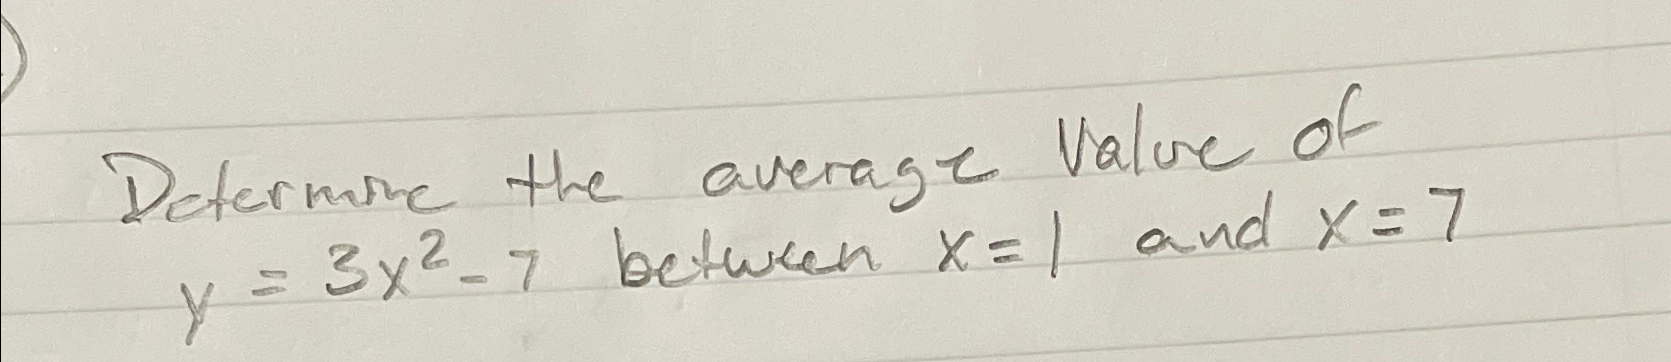 Determine the average value of
y = 3x² - 7 between x = 1 and x = 7